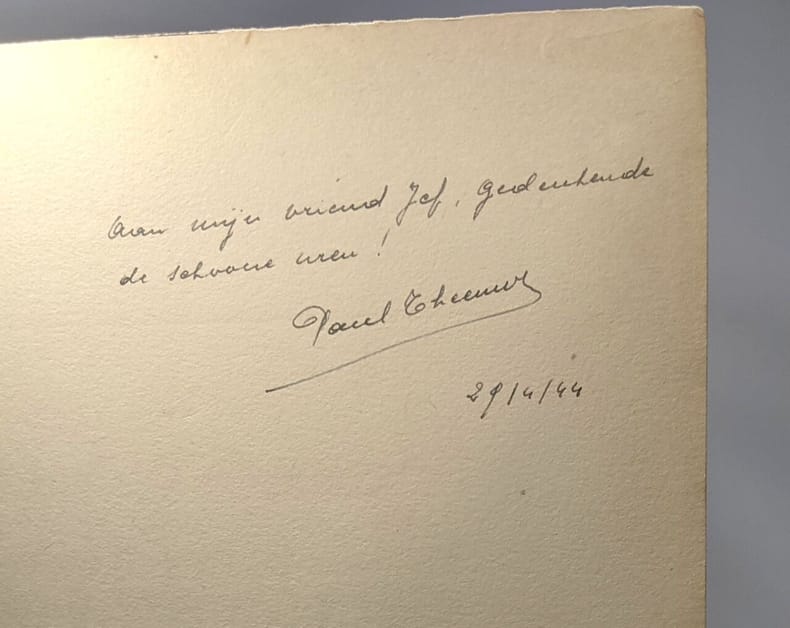 Aan mijn vriend Jef, gedenkende
de schoone uren!
Paul Theeuws
29/4/44